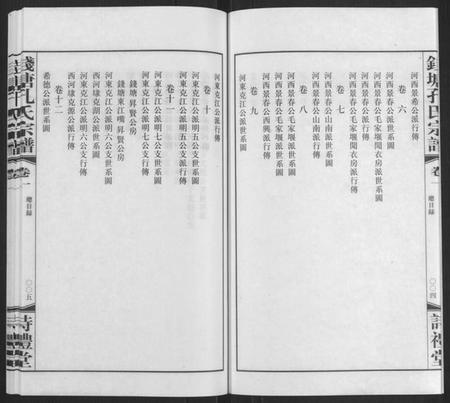 錢塘孔氏宗譜
卷一
總目錄
〇〇四
詩禮堂
河西景希公派行傳
卷六
河西景春公毛家堰閣衣房派世系圖
河西景春公毛家堰閣衣房派行傳
河西景春公派世系圖
河西景春公派行傳
卷七
河西景春公毛家堰派世系圖
河西景春公山南派行傳
卷八
河西景春公毛家堰派行傳
河西景春公西興派行傳
卷九
河東克江公派世系圖
河東克江公派行傳
卷十
河東克江公派明五公支世系圖
河東克江公派明五公支行傳
卷十一
河東克江公派明七公支世系圖
河東克江公派明七公支行傳
錢塘昇賢公房
錢塘東江嘴昇公房
河東克江公派明六公支世系圖
河東克江公派明六公支行傳
西河克源公派行傳
卷十二
希德公派世系圖
錢塘孔氏宗譜
卷一
總目錄
〇〇五
詩禮堂